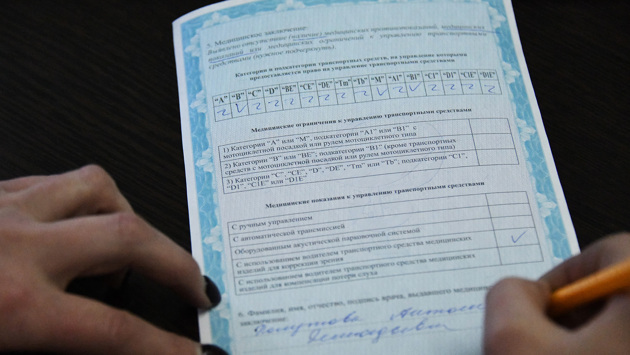 5. Медицинское заключение:
Выявлено/отсутствие (наличие) медицинских противопоказаний, медицинских
показаний или медицинских ограничений к управлению транспортными
средствами (нужное подчеркнуть).
Категории и подкатегории транспортных средств, на управление которыми
предоставляется право на управление транспортными средствами
"A" "B" "C" "D" "BE" "CE" "DE" "Tm" "Tb" "M" "A1" "B1" "C1" "D1" "C1E" "D1E"
Медицинские ограничения к управлению транспортными средствами
1) Категории "A" или "M", подкатегории "A1" или "B1" с
мотоциклетной посадкой или рулем мотоциклетного типа
2) Категории "B" или "BE", подкатегории "B1" (кроме транспортных
средств с мотоциклетной посадкой или рулем мотоциклетного типа)
3) Категории "C", "CE", "D", "DE", "Tm" или "Tb", подкатегории "C1",
"D1", "C1E" или "D1E"
Медицинские показания к управлению транспортными средствами
С ручным управлением
С автоматической трансмиссией
Оборудованным акустической парковочной системой
С использованием водителем транспортного средства медицинских
изделий для коррекции зрения
С использованием водителем транспортного средства медицинских
изделий для компенсации потери слуха
6. Фамилия, имя, отчество, подпись врача, выдавшего
заключение: